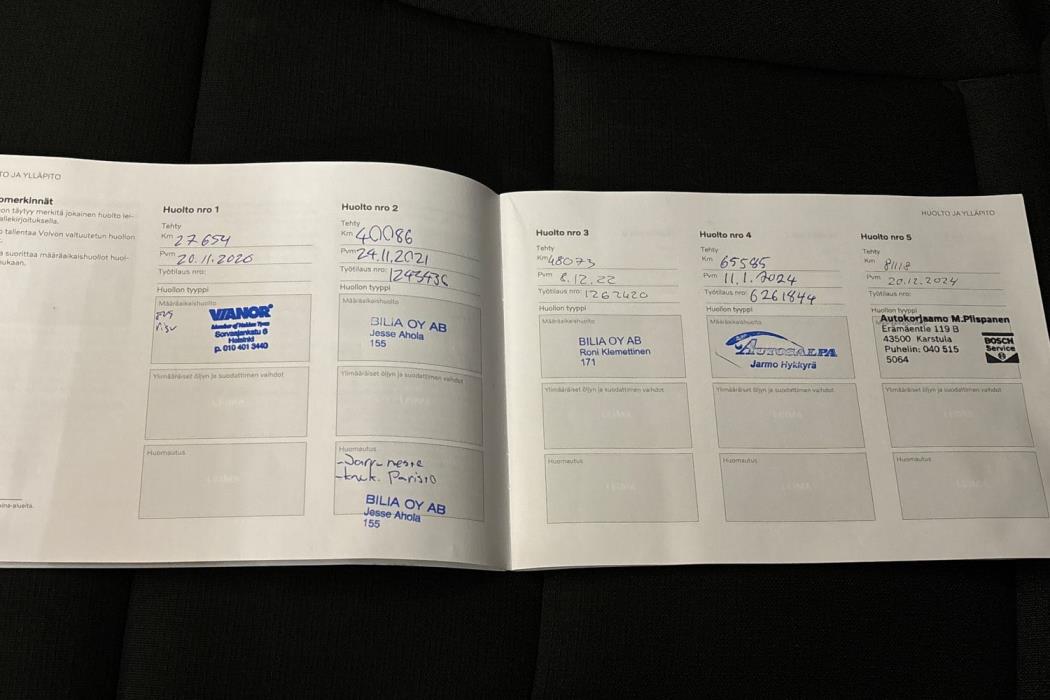 TO JA YLLÄPITO
omerkinnät
on täytyy merkitä jokainen huolto lei-
allekirjoituksella.
o tallentaa Volvon valtuutetun huollon
a suorittaa määräaikaishuollot huol-
ukaan.
aina-alueita.
Huolto nro 1
Tehty
Km 27654
Pvm 20.11.2020
Työtilaus nro:
Huollon tyyppi
Määräaikaishuolto
VIANOR
Member of Nokian Tyres
Sorvaajankatu 6
Helsinki
p. 010 401 3440
Ylimääräiset öljyn ja suodattimen vaihdot
LEIMA
Huomautus
LEIMA
Huolto nro 2
Tehty
Km 40086
Pvm 24.11.2021
Työtilaus nro: 1243436
Huollon tyyppi
Määräaikaishuolto
BILIA OY AB
Jesse Ahola
155
Ylimääräiset öljyn ja suodattimen vaihdot
LEIMA
Huomautus
-Jarru neste
BILIA OY AB
Jesse Ahola
155
HUOLTO JA YLLÄPITO
Huolto nro 3
Tehty
Km 48073
Pvm 8.12.22
Työtilaus nro: 1262420
Huollon tyyppi
Määräaikaishuolto
BILIA OY AB
Roni Klemettinen
171
Ylimääräiset öljyn ja suodattimen vaihdot
LEIMA
Huomautus
LEIMA
Huolto nro 4
Tehty
Km 65585
Pvm 11.1.2024
Työtilaus nro: 6261844
Huollon tyyppi
Määräaikaishuolto
AUTOSALPA
Jarmo Hykkyrä
Ylimääräiset öljyn ja suodattimen vaihdot
LEIMA
Huomautus
LEIMA
Huolto nro 5
Tehty
Km 81118
Pvm 20.12.2024
Työtilaus nro:
Huollon tyyppi
Autokorjaamo M.Piispanen
Erämäentie 119 B
43500 Karstula
Puhelin: 040 515
5064
BOSCH
Service
Ylimääräiset öljyn ja suodattimen vaihdot
LEIMA
Huomautus
LEIMA